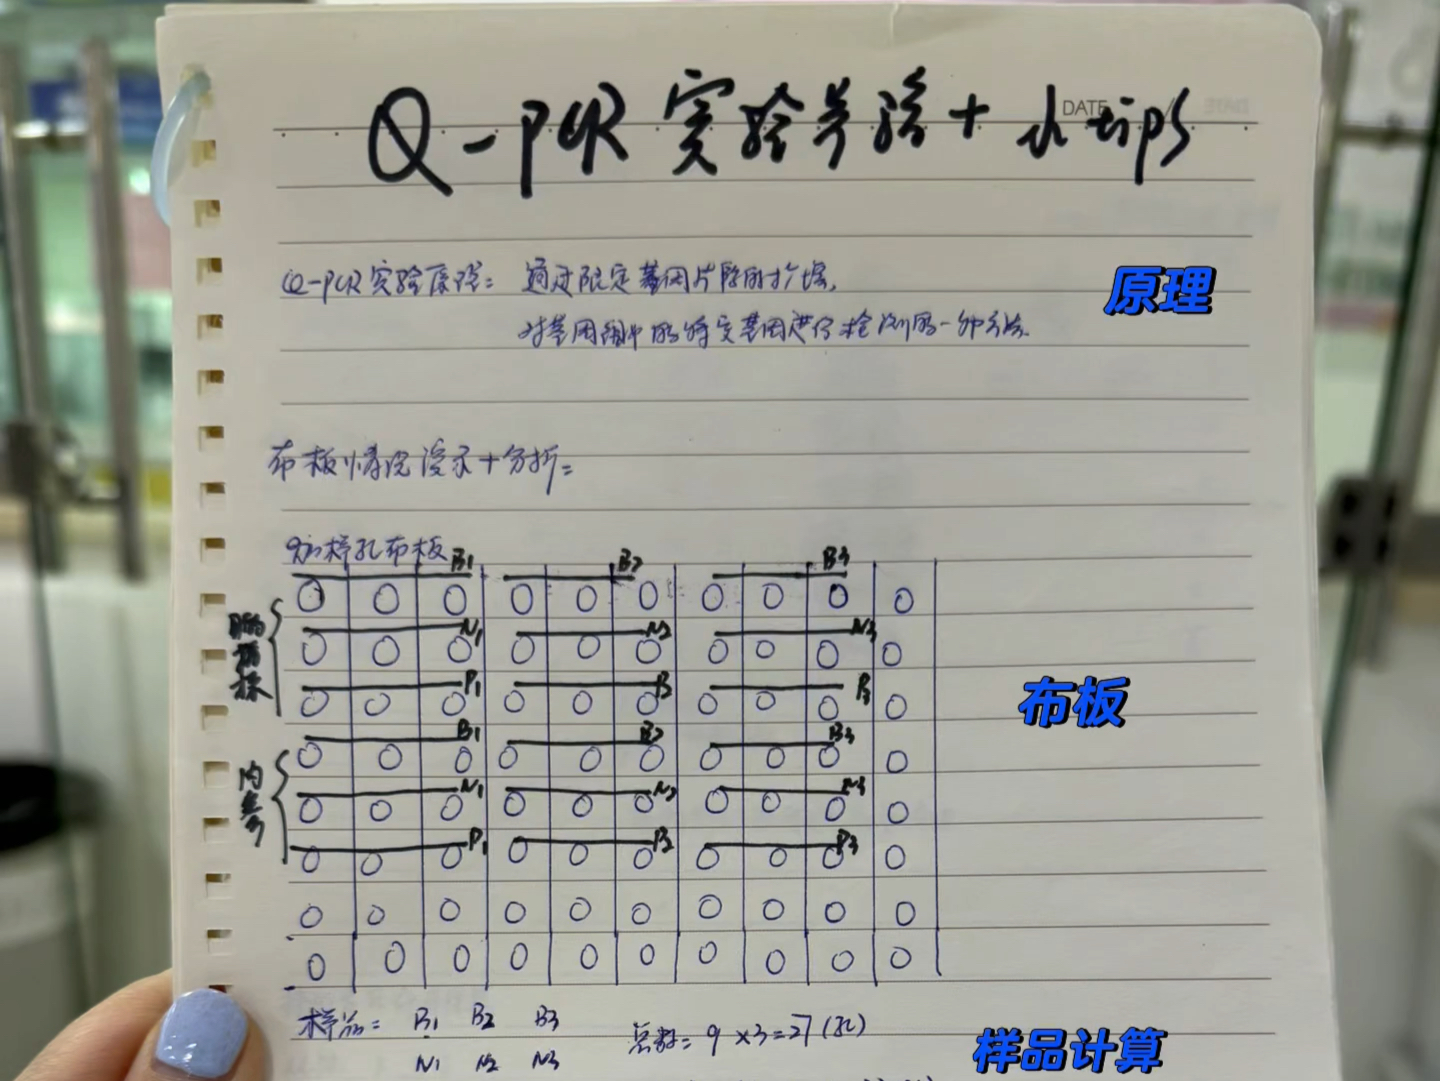 DATE
Q-PCR 实验步骤 + 小tips
Q-PCR实验原理: 通过限定基因片段的扩增,
对基因组中的特定基因进行检测的一种方法.
原理
布板情况演示+分析:
加样孔布板
B1 B2 B3
N1 N2 N3
目的指标
P1 P2 P3
布板
B1 B2 B3
内参
N1 N2 N3
P1 P2 P3
样品: B1 B2 B3 总数= 9×3=27(孔)
N1 N2 N3
样品计算